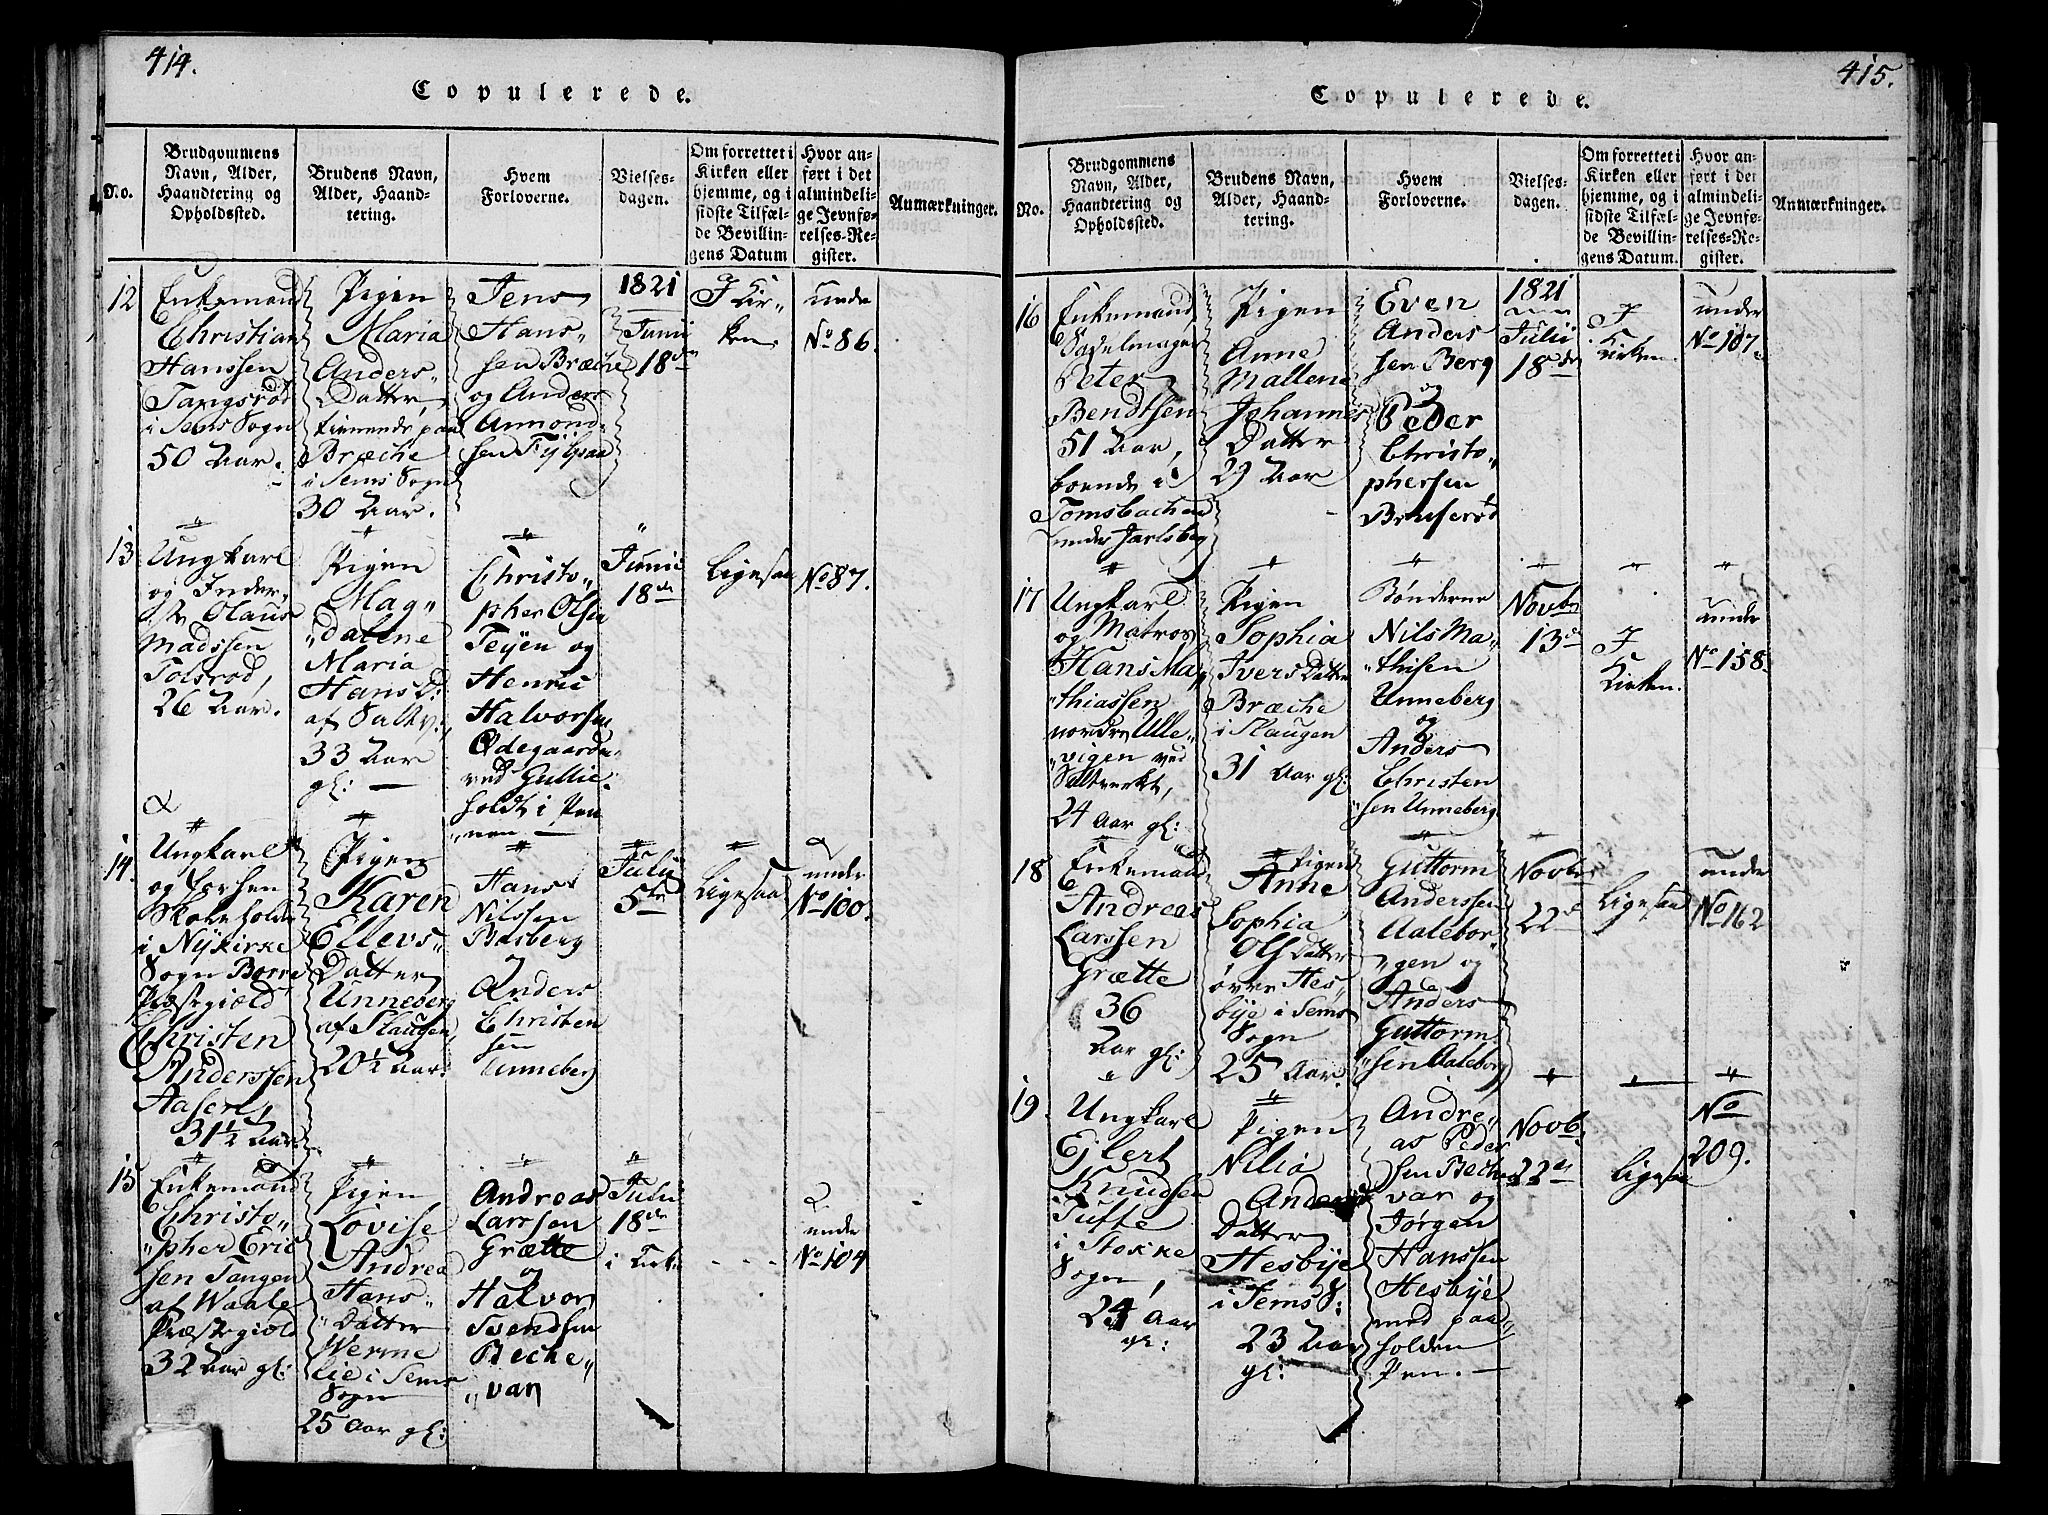 414.
Copulerede.
No.
Brudgommens
Navn, Alder,
Haandtering og
Opholdssted.
Brudens Navn,
Alder, Haand-
tering.
Hvem
Forloverne.
Vielses-
dagen.
Om forrettet i
Kirken eller
hjemme, og i
sidste Tilfæl-
de Bevillin-
gens Datum
Hvor an-
ført i det
almindeli-
ge Jevnfø-
relses-Re-
gister.
Anmærkninger.
12
Enkemand
Christian
Hanssen
Tangsrød
i Sems Sogn
50 Aar.
Pigen
Maria
Anders-
Datter,
tienende paa
Bræche
i Sems Sogn
30 Aar.
Jens
Hans-
sen Bræche
og Anders
Ammond-
sen
1821
Junii
18de
I Kir-
ken
under
No 86.
13
Ungkarl
og Inder-
st Olaus
Madssen
Tolsrød,
26 Aar.
Pigen
Mag-
dalene
Maria
Hans D:
af
33 Aar
gl:
Christo-
pher Olsen
Teÿen og
Henric
Halvorsen
Ødegaarden
ved Gullie-
holdt i
Junii
18de
Ligesaa
No 87.
14.
Ungkarl
og
Skoleholder
i Nykirke
Sogn Borre
Præstegiæld
Christen
Anderssen
31½ Aar
Pigen
Karen
Ellevs-
Datter
Unneberg
af Slaugen
20½ Aar.
Hans
Nilssen
Basberg
Anders
Christen
sen
Unneberg
Julii
5te
Ligesaa
under
No 100.
15
Enkemand
Christo-
pher Eric
sen Tangen
af Waale
Præstegiæld
32 Aar gl:
Pigen
Lovise
Andrea
Hans-
Datter
Werme
lie i Sems
Sogn
25 Aar gl:
Andreas
Larssen
Grætte
og
Halvor
Svendsen
Beche-
var
Julii
18de
i Kirk:
under
No 104
415.
Copulerede.
No.
Brudgommens
Navn, Alder,
Haandtering og
Opholdssted.
Brudens Navn,
Alder, Haand-
tering.
Hvem
Forloverne.
Vielses-
dagen.
Om forrettet i
Kirken eller
hjemme, og i
sidste Tilfæl-
de Bevillin-
gens Datum.
Hvor an-
ført i det
almindeli-
ge Jevnfø-
relses-Re-
gister.
Anmærkninger.
16
Enkemand,
Sadelmager
Peter
Bendtsen
51 Aar,
boende i
Tomsbachen
under Jarlsberg
Pigen
Anne
Mallene
Johannes
Datter
29 Aar
Even
Anders
sen Berg
og
Peder
Christo-
phersen
Bruserød
1821
Julii
18de
I
Kirken.
under
No 107
17
Ungkarl
og Matros
Hans Ma-
thiassen
nordre Ulle-
vigen ved
Saltverket,
24 Aar gl:
Pigen
Sophia
Ivers Datter
Bræche
i Slaugen
31 Aar gl:
Bønderne
Nils Ma-
thisen
Unneberg
og
Anders
Christen
sen Unneberg
Novbr
13de
I
Kirken.
under
No 158.
18
Enkemand
Andreas
Larssen
Grætte
36
Aar gl:
Pigen
Anne
Sophia
Ols Datter
øvre Hes-
bye i Sems
Sogn
25 Aar.
Guttorm
Anderssen
Aalebor-
gen og
Anders
Guttorm
sen Aaleborg
Novbr
22de
Ligesaa
under
No 162
19
Ungkarl
Ejlert
Knudsen
Tuffte
i Stokke
Sogn,
24 Aar
gl:
Pigen
Nilia
Anders
Datter
Hesbye
i Sems S:
23 Aar
gl:
Andre-
as Peder
sen Beche
var og
Jørgen
Hanssen
Hesbye
med paa-
holden
Pen.
Novb.
22de
Ligesaa
No
209.